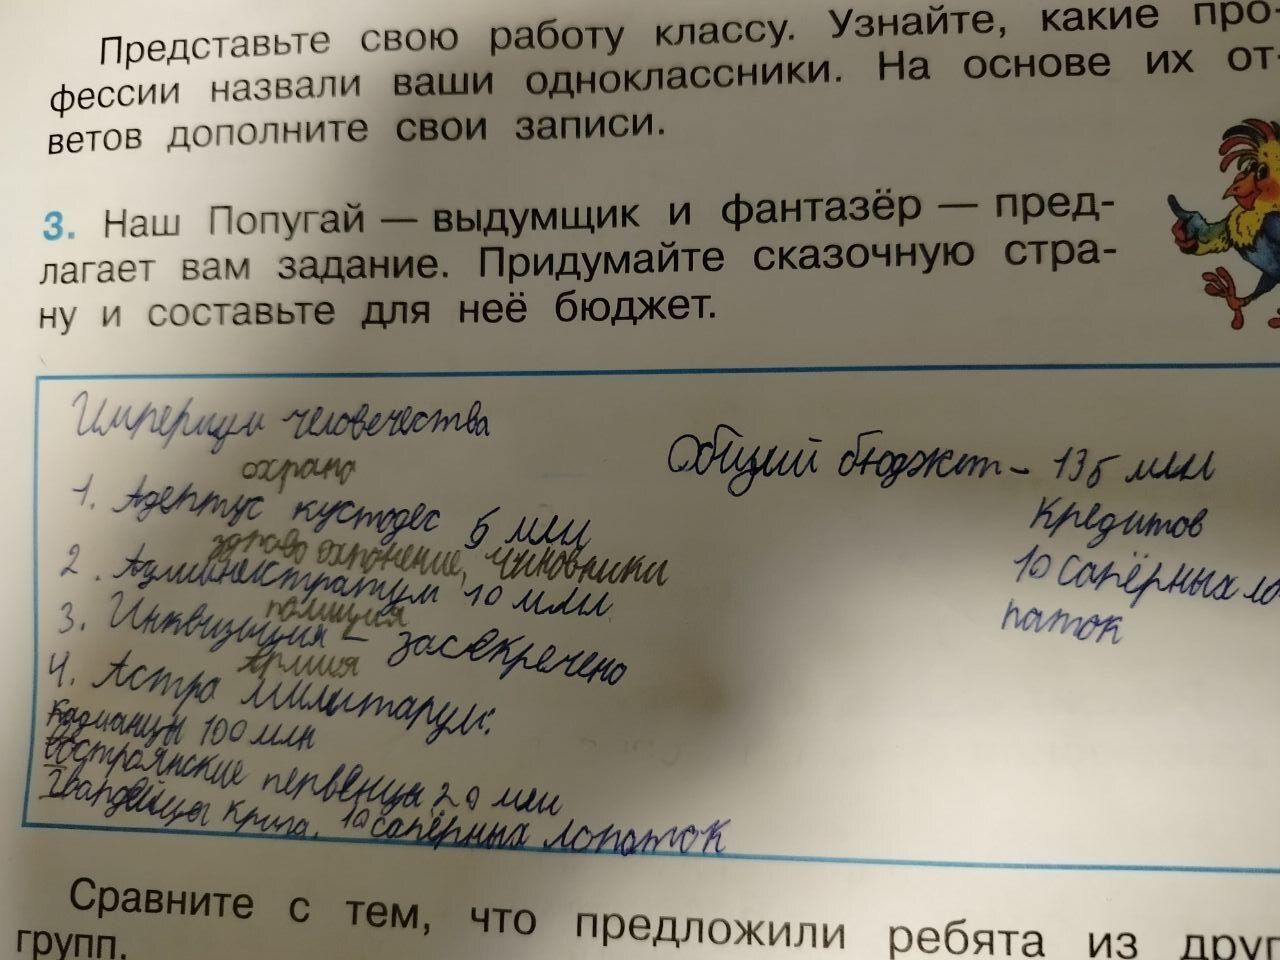 Представьте свою работу классу. Узнайте, какие про-
фессии назвали ваши одноклассники. На основе их от-
ветов дополните свои записи.
3. Наш Попугай — выдумщик и фантазёр — пред-
лагает вам задание. Придумайте сказочную стра-
ну и составьте для неё бюджет.
Империум человечества
Общий бюджет - 135 млн
кредитов
10 сапёрных ло
паток
охрана
1. Адептус кустодес 5 млн
здравоохронение, чиновники
2. Администратум 10 млн
полиция
3. Инквизиция - засекречено
Армия
4. Астра милитарум:
Кадианцы 100 млн
Востроянские первенцы 20 млн
Гвардейцы крига. 10 сапёрных лопаток
Сравните с тем, что предложили ребята из друг
групп.